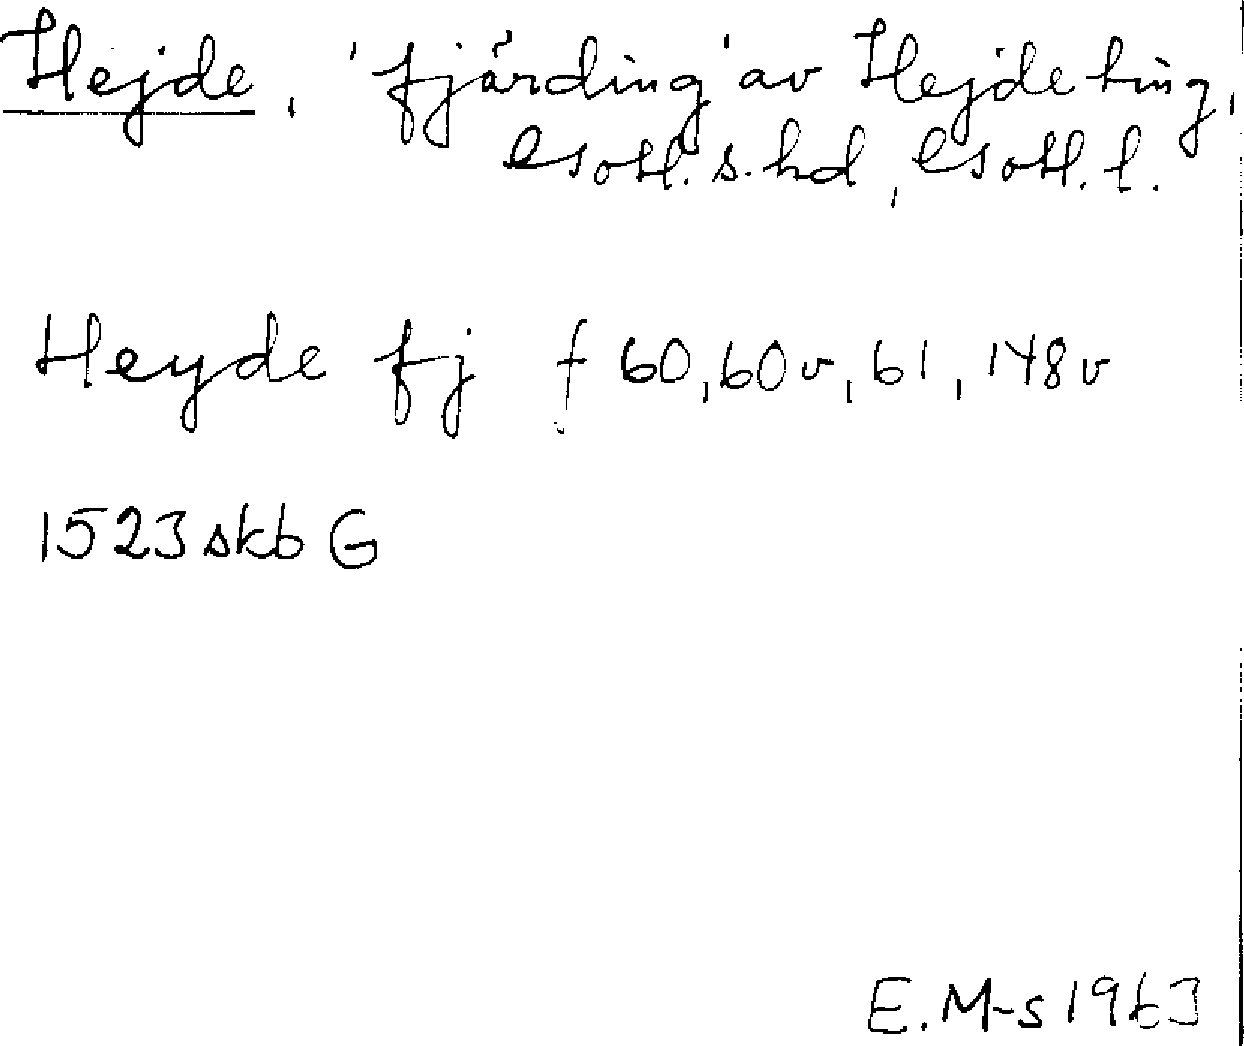 Hejde, 'fjärding' av Hejde ting,
Gotl. s. hd, Gotl. l.
Heyde fj f 60, 60v, 61, 148v
1523 skb G
E. M-s 1963